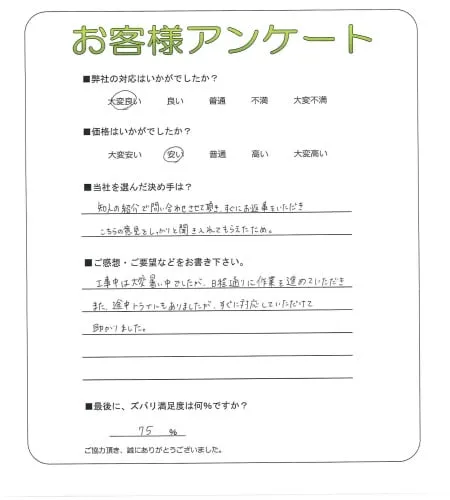 お客様アンケート
■弊社の対応はいかがでしたか？
大変良い　良い　普通　不満　大変不満
■価格はいかがでしたか？
大変安い　安い　普通　高い　大変高い
■当社を選んだ決め手は？
知人の紹介で問い合わせさせて頂き、すぐにお返事をいただき
こちらの意見をしっかりと聞き入れてもらえたため。
■ご感想・ご要望などをお書き下さい。
工事中は大変暑い中でしたが、日程通りに作業を進めていただき
また、途中トラブルもありましたが、すぐに対応していただけて
助かりました。
■最後に、ズバリ満足度は何％ですか？
75　％
ご協力頂き、誠にありがとうございました。